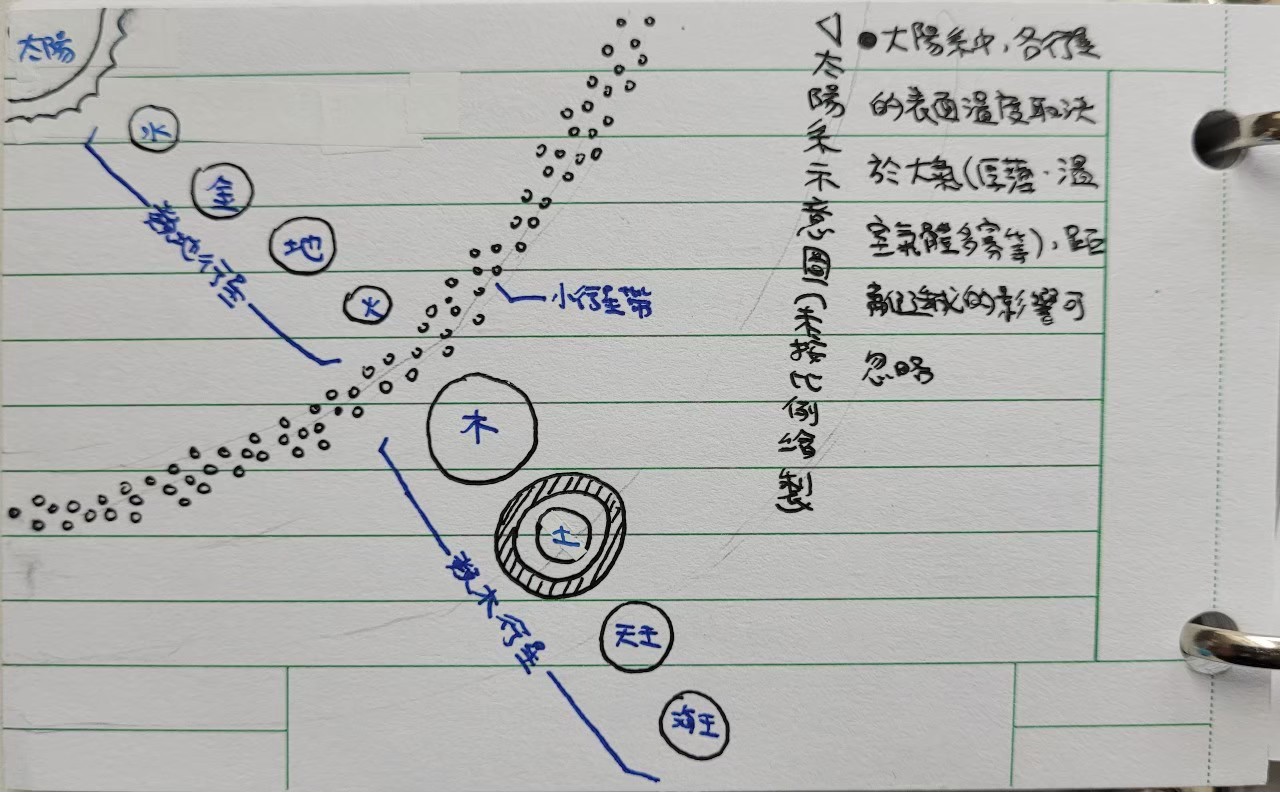 太陽
水
金
地
火
類地行星
小行星帶
木
土
天王
海王
類木行星
◁太陽系示意圖(未按比例繪製)
●太陽系中,各行星
的表面溫度取決
於大氣(厚薄、溫
室氣體多寡等),距
離遠近的影響可
忽略